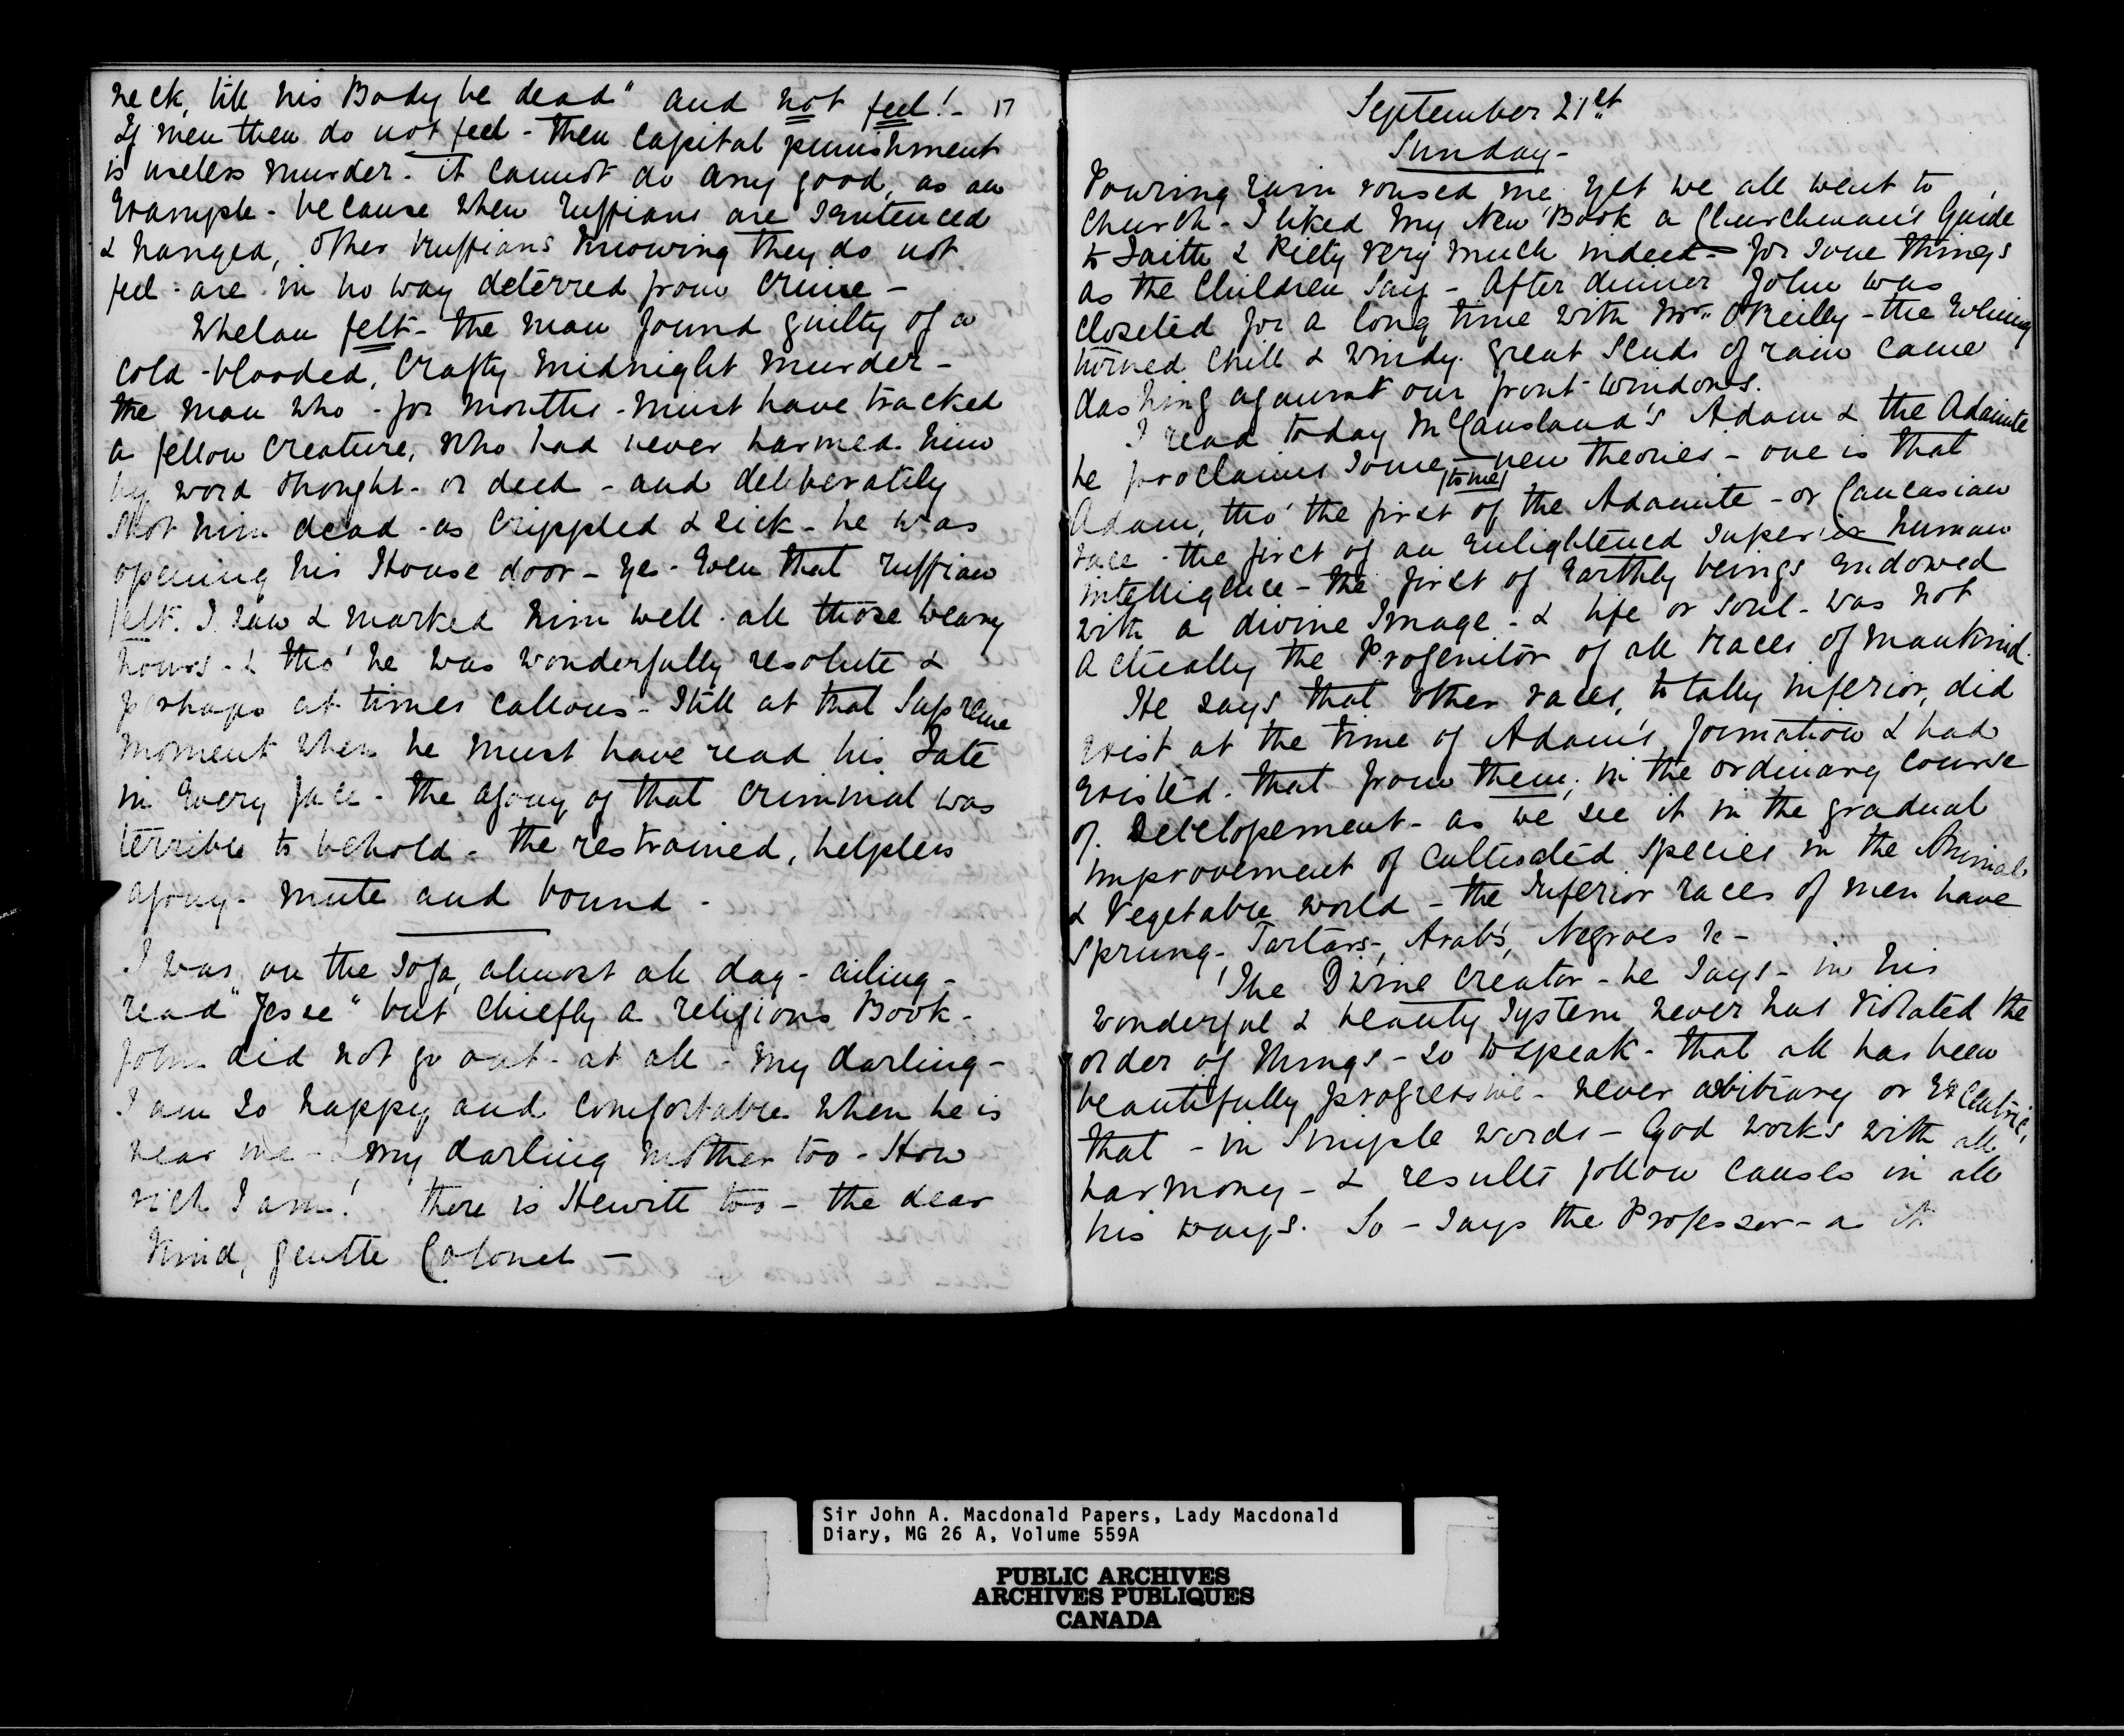 neck, till his Body be dead" and not feel! - 17
If men then do not feel - then capital punishment
is useless murder - it cannot do any good, as an
Example - because when ruffians are sentenced
& hanged, other ruffians knowing they do not
feel - are in no way deterred from crime -
Whelan felt - the man found guilty of a
cold-blooded, crafty midnight murder -
the man who - for months - must have tracked
a fellow creature, who had never harmed him
by word thought - or deed - and deliberately
shot him dead - as crippled & sick - he was
opening his House door - Yes - Even that ruffian
felt. I saw & marked him well - all those weary
hours - & tho' he was wonderfully resolute &
perhaps at times callous - Still at that Supreme
moment when he must have read his Fate
in Every face - the agony of that criminal was
terrible to behold - the restrained, helpless
agony - mute and bound -
I was, on the sofa, almost all day - ailing -
read "Jesse" but chiefly a religious Book -
John did not go out - at all - My darling -
I am so happy and comfortable when he is
near me - & my darling Mother too - How
rich I am! There is Hewitt too - the dear
Kind, gentle Colonel -
September 21st
Sunday -
Pouring rain roused me yet we all went to
Church - I liked my New Book a Churchman's Guide
to Faith & Piety very much indeed - for some things
as the Children Say - After dinner John was
closeted for a long time with Mr. O'Reilly - the Evening
turned chill & windy. Great Scuds of rain came
dashing against our front windows.
I read today McCausland's Adam & the Adamite
he proclaims some - new theories - one is that
(to me)
Adam, tho' the first of the Adamite - or Caucasian
race - the first of an Enlightened superior human
intelligence - the first of Earthly beings Endowed
with a divine Image - & life or soul - was not
actually the Progenitor of all races of mankind.
He says that other races, totally inferior, did
exist at the time of Adam's formation & had
existed. that from them, in the ordinary course
of Developement - as we see it in the gradual
improvement of cultivated species in the Animal
& Vegetable world - the Inferior races of men have
sprung - Tartars -, Arabs, Negroes &c -
The Divine Creator - he says - in his
wonderful & beauty System never has violated the
order of things - so to speak - that all has been
beautifully progressive - never arbitrary or Excentric,
that - in Simple words - God works with all
harmony - & results follow causes in all
his ways. So - says the Professor - as it
Sir John A. Macdonald Papers, Lady Macdonald
Diary, MG 26 A, Volume 559A
PUBLIC ARCHIVES
ARCHIVES PUBLIQUES
CANADA